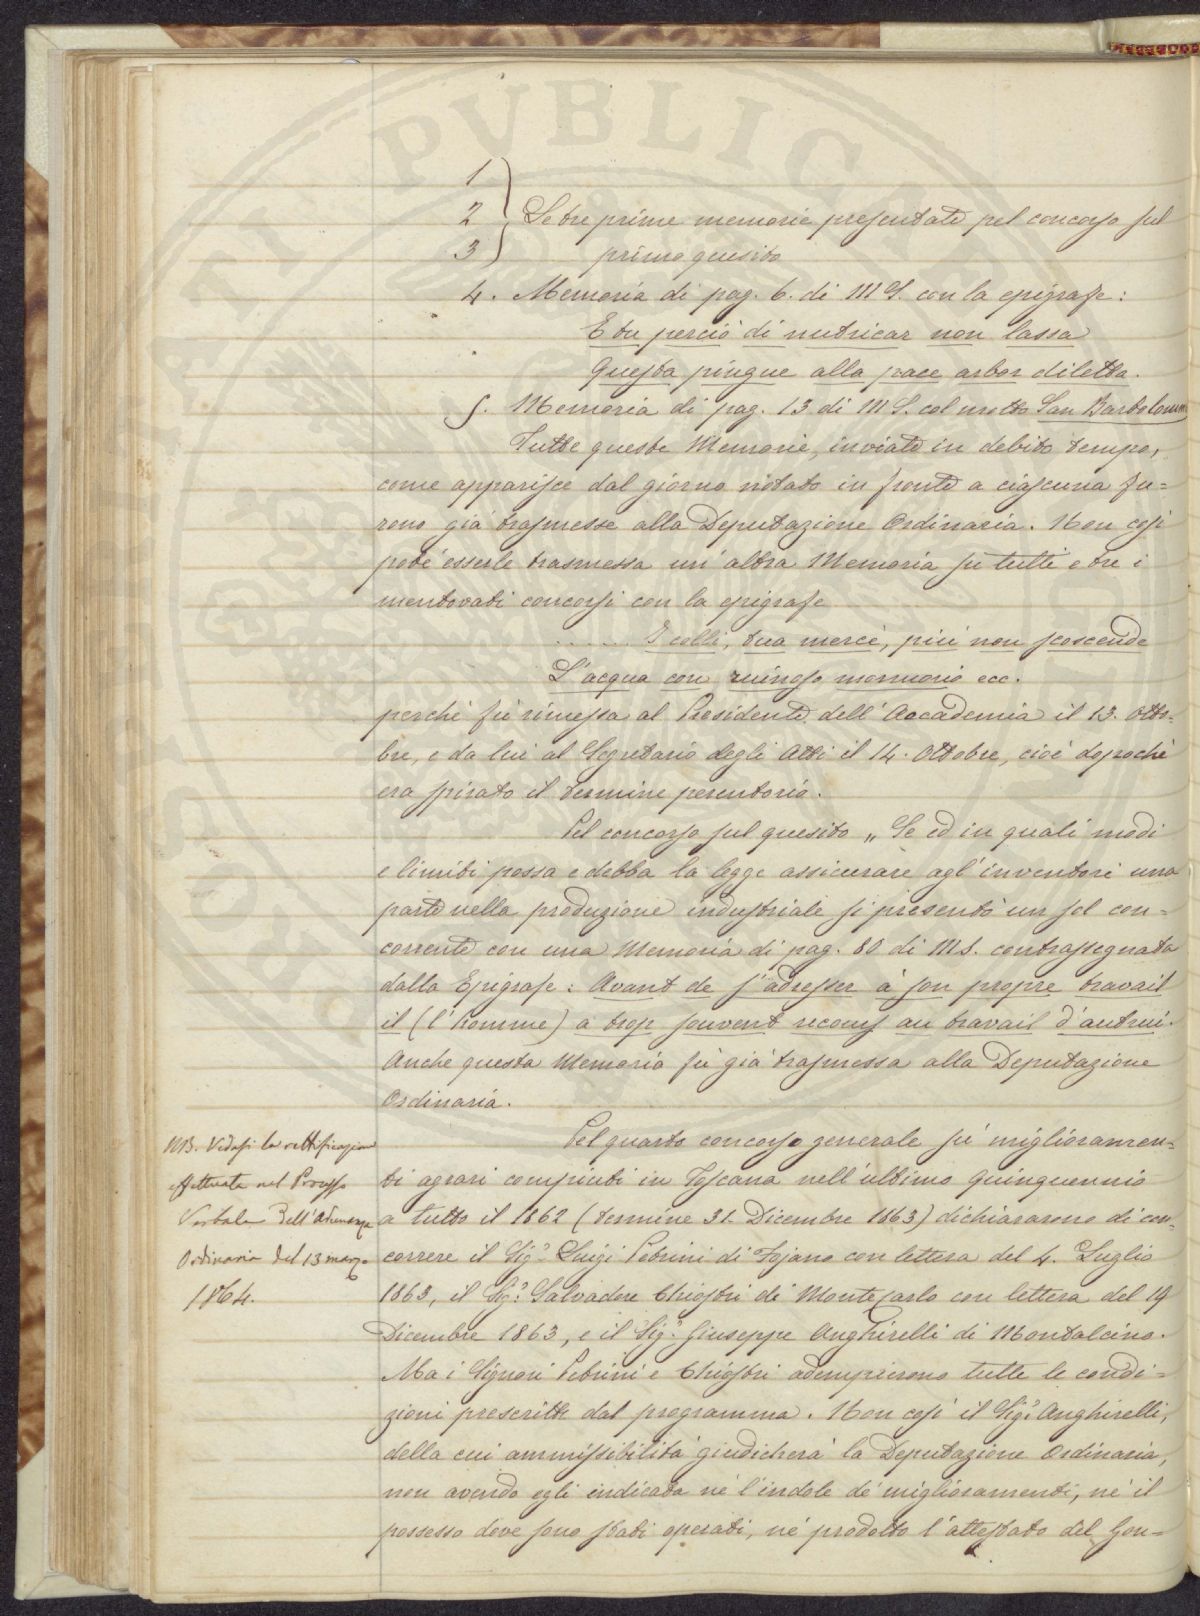 1
2 } Le tre prime memorie presentate pel concorso sul
3 primo quesito
4. Memoria di pag. 6. di MS. con la epigrafe:
E tu perciò di nutricar non lassa
Questa pingue alla pace arbor diletta.
5. Memoria di pag. 13 di MS. col motto San Bartolomm
Tutte queste Memorie, inviate in debito tempo,
come apparisce dal giorno notato in fronte a ciascuna fu=
rono già trasmesse alla Deputazione Ordinaria. Non così
potè esserle trasmessa un'altra Memoria su tutti e tre i
mentovati concorsi con la epigrafe
....... I colli, tua mercè, più non scoscende
L'acqua con ruinoso mormorio ecc.
perchè fù rimessa al Presidente dell'Accademia il 13. Otto=
bre, e da lui al Segretario degli Atti il 14. Ottobre, cioè dopochè
era spirato il termine perentorio.
Pel concorso sul quesito „ Se ed in quali modi
e limiti possa e debba la legge assicurare agl'inventori una
parte nella produzione industriale si presentò un sol con=
corrente con una Memoria di pag. 80 di MS. contrassegnata
dalla Epigrafe: Avant de s'adresser à son propre travail
il (l'homme) a trop souvent recours au travail d'autrui.
Anche questa Memoria fù già trasmessa alla Deputazione
Ordinaria.
Pel quarto concorso generale su' miglioramen=
ti agrari compiuti in Toscana nell'ultimo quinquennio
a tutto il 1862 (termine 31. Dicembre 1863) dichiararono di con=
correre il Sig.r Luigi Petrini di Fojano con lettera del 4. Luglio
1863, il Sig.r Salvadore Chiostri di Montecarlo con lettera del 19
Dicembre 1863, e il Sig.r Giuseppe Anghirelli di Montalcino.
Ma i Signori Petrini e Chiostri adempierono tutte le condi=
zioni prescritte dal programma. Non così il Sig.r Anghirelli,
della cui ammissibilità giudicherà la Deputazione Ordinaria,
non avendo egli indicata nè l'indole de' miglioramenti, nè il
possesso dove sono stati operati, nè prodotto l'attestato del Gon=
NB. Vedasi la rettificazione
effettuata nel Processo
Verbale dell'Adunanza
Ordinaria del 13 marzo
1864.
PUBLIC